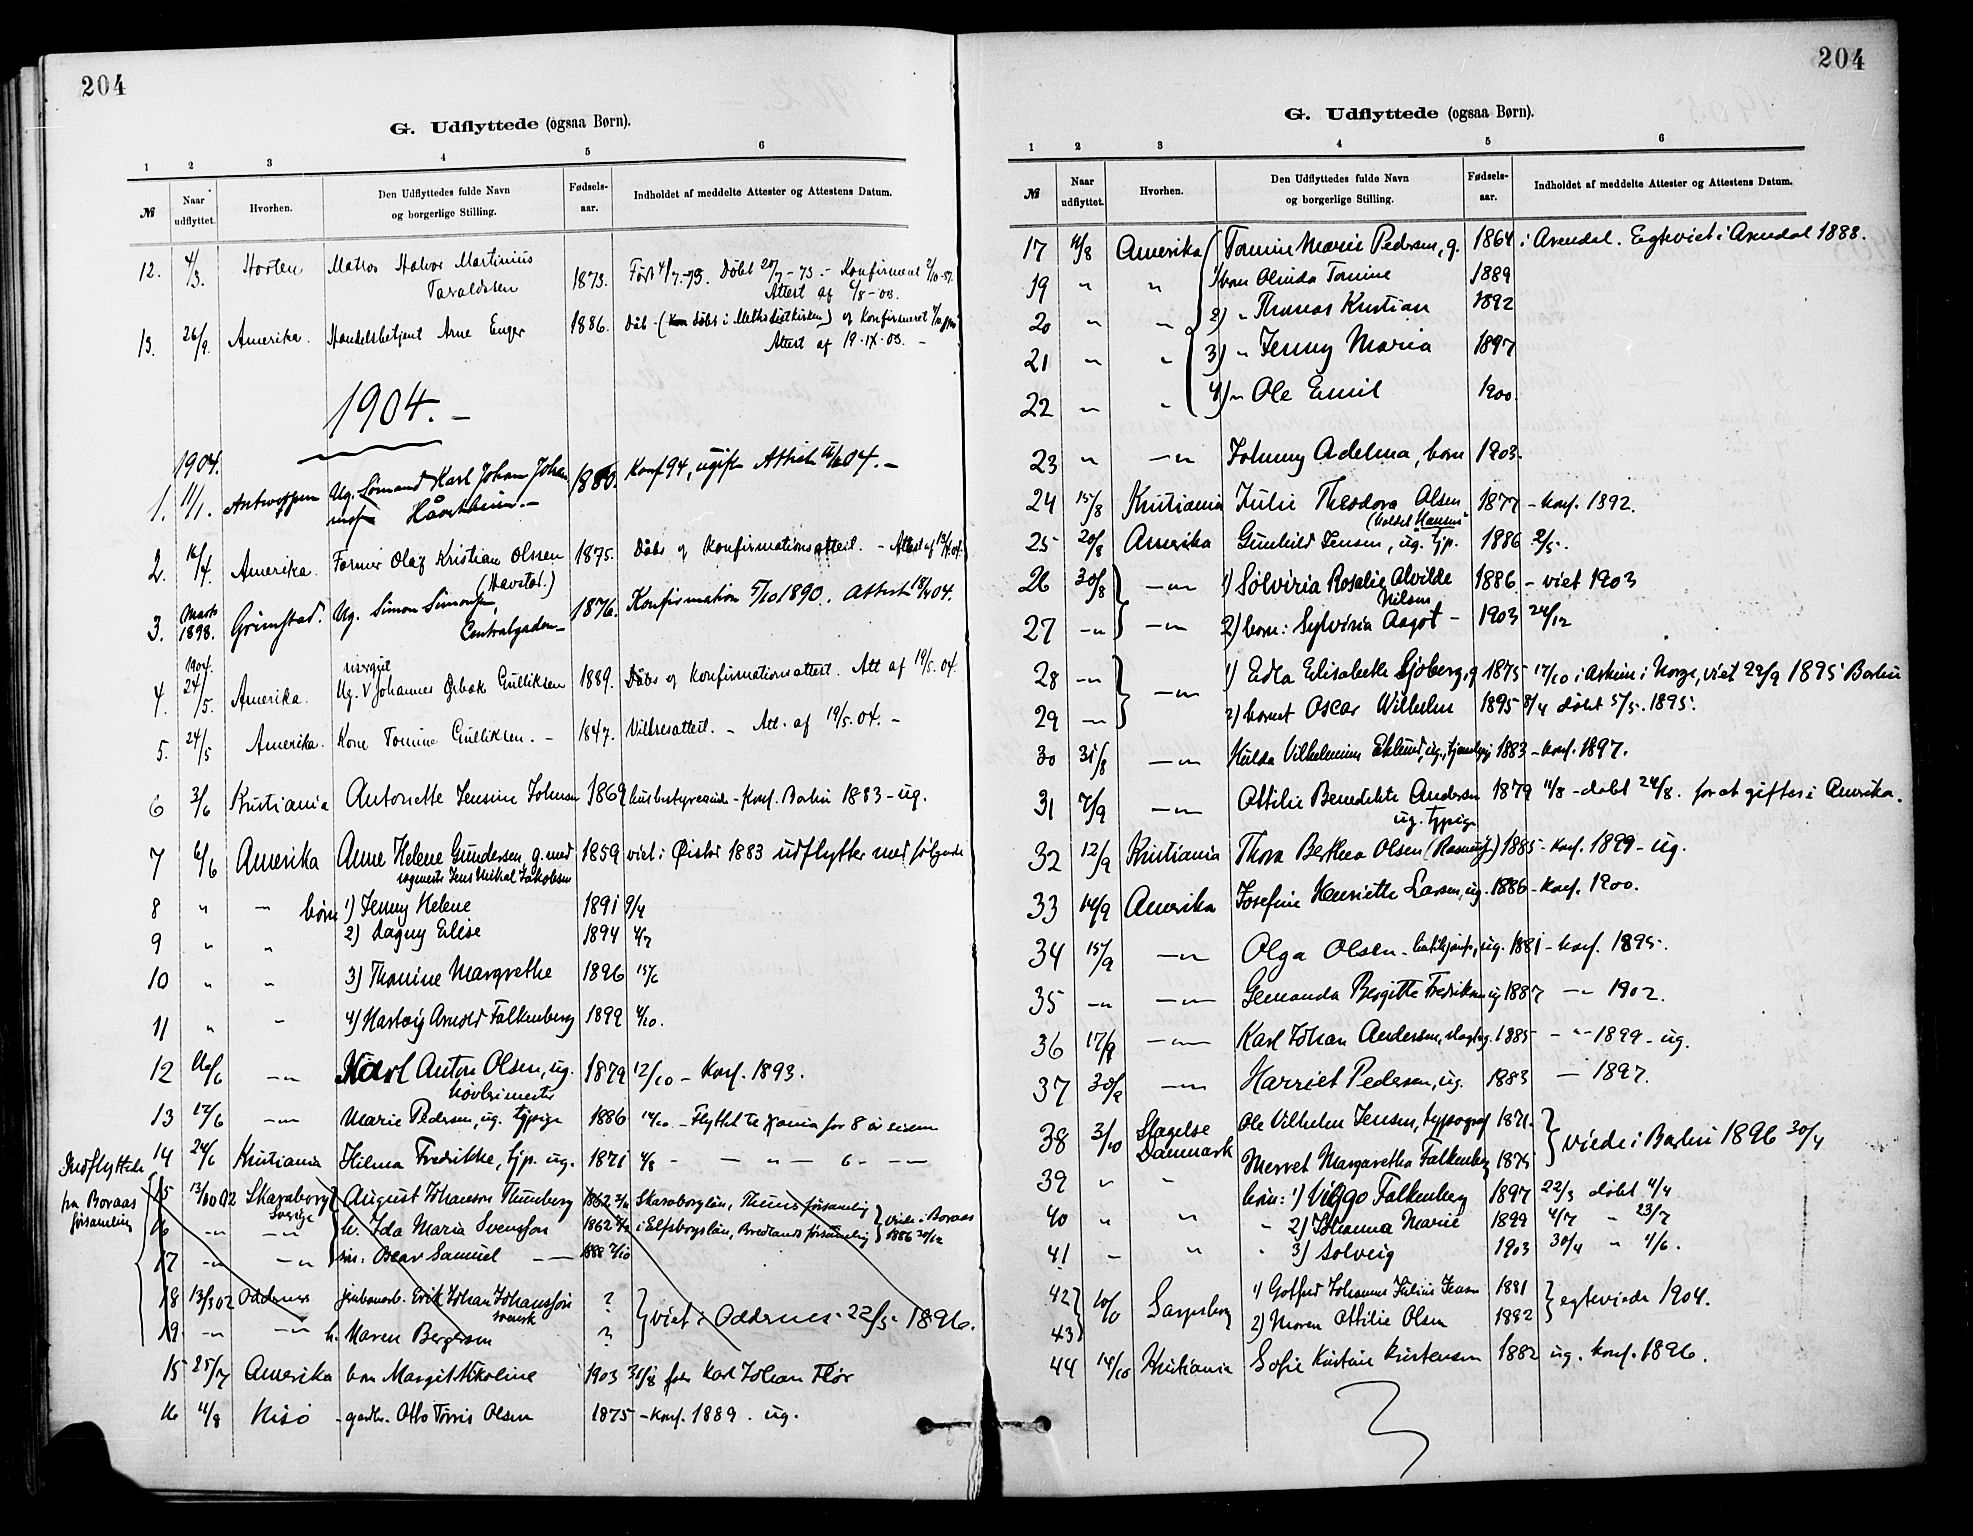 204
G. Udflyttede (ogsaa Børn).
1 2 3 4 5 6
№ Naar udflyttet. Hvorhen. Den Udflyttedes fulde Navn og borgerlige Stilling. Fødsels-aar. Indholdet af meddelte Attester og Attestens Datum.
12. 4/3. Horten Matros Halvor Martinius 1873. Født 4/7-73. Døbt 20/7-73. - Konfirmeret
Taraldsen Attest af 6/8-03.
13. 26/9. Amerika. Handelsbetjent Arne Enger 1886. Dåb - (døbt i Methodistkirken) og Konfirmeret
Attest af 19.IX.03. -
1904. -
1904.
1. 11/1. Antwerpen Ug. Sømand Karl Johan Johan 1880. Konf 94, ugift Attest 04. -
2. 16/4. Amerika. Farmer Olaf Kristian Olssen 1875. Dåbs og Konfirmationsattest. - Attest af
(Havstad.)
3. Marts 1898. Grimstad. Ug. Simon Simonsen, 1876. Konfirmation 5/10 1890. Attest 04.
Centralgaden -
1904.
4. 24/5. Amerika. Ug. Johannes Ørbæk Gulliksen 1889. Dåbs og Konfirmationsattest. Att af 19/5.04.
5. 24/5 Amerika. Kone Tomine Gulliksen. - 1847. Vilkårsattest. - Att. af 19/5.04. -
6 3/6 Kristiania Antonette Jensine Johnsen 1869 husbestyrerinde - Konf. Barbu 1883 - ug.
7 6/6 Amerika Anne Helene Gundersen, g. med 1859 viet i Øistad 1883 udflytter med følgende
Jens Mikal Jakobsen
8 " " børn 1) Jenny Helene 1891 9/4
9 " " 2) Dagny Elise 1894 4/7
10 " " 3) Thomine Margrethe 1896 15/6
11 " " 4) Hartvig Arnold Falkenberg 1899 4/10.
12 10/6 - " - Karl Anton Olsen, ug. 1879 12/10 - Konf. 1893.
høvlerimester
13 17/6 - " - Marie Pedersen, ug. tjpige 1886 14/10 - Flyttet til Xania for 8 år siden
14 24/6 Kristiania Hilma Fredrikke, tjp. ug. 1871 4/8 - - " - 6 - - -
Indflyttede
fra Boraas
forsamling
15 13/10 02 Skaraborg Sverige August Johanson Thunberg 1862 Skaraborglän, Thuns församling
16 - " - - " - h. Ida Maria Svensson 1862 i Elfsborgslän, Bredlands församling viede i Boraas 1886
17 - " - - " - søn: Oscar Samuel - 1888 7/10
18 13/3 02 Oddernes jernbanearb. Erik Johan Johansson ? viet i Oddernes 22/5 1896.
svensk
19. - " - - " - h. Maren Bergersen ?
15 25/7 Amerika barn Margit Nikoline 1903 31/8 født Karl Johan Flor
16 11/8 Hisø - Otto Tørris Olsen 1875 - Konf. 1889. ug.
204
G. Udflyttede (ogsaa Børn).
1 2 3 4 5 6
№ Naar udflyttet. Hvorhen. Den Udflyttedes fulde Navn og borgerlige Stilling. Fødsels-aar. Indholdet af meddelte Attester og Attestens Datum.
17 11/8 Amerika Tomine Marie Pedersen, g. 1864 i Arendal. Egteviet i Arendal 1888.
19 " " 1) barn Olinda Tomine 1889
20 " " 2) " Thomas Kristian 1892
21 " " 3) " Jenny Maria 1897
22 " " 4) " Ole Emil 1900
23 " - " - Johnny Adelma, barn 1903.
24 15/8 Kristiania Julie Theodora Olsen 1877 - Konf. 1892.
(kaldet Hansen)
25 20/8 Amerika Gunhild Jensen, ug. tjp. 1886 2/5.
26 30/8 - " - 1) Sølviria Rosalie Alvilde 1886 - viet 1903
Nilsen
27 - " - - " - 2) barn: Sylviria Aagot - 1903 24/12
28 - " - - " - 1) Edla Elisabeth Sjøberg, g 1875 17/10 i Askim i Norge, viet 29/9 1895 Barbu
29 - " - 2) barnet Oscar Wilhelm 1895 8/4 døbt 5/5. 1895.
30 31/8 - " - Hulda Vilhelmine Eklund, ug., tjenestepg 1883 - Konf. 1897.
31 7/9 - " - Ottilie Benedikte Andersen 1879 11/8 - døbt 24/8. for at giftes i Amerika.
ug. tjpige
32 12/9 Kristiania Thora Berthea Olsen 1885 - Konf. 1899 - ug.
33 14/9 Amerika Josefine Henriette Larsen, ug. 1886 - Konf. 1900.
34 15/9 - " - Olga Olsen - butikjomf., ug. 1881 - Konf. 1895.
35 - " - - " - Gemanda Bergitte Fredriksen ug 1887 - " - 1902.
36 17/9 - " - Karl Johan Andersen, 1885 - " - 1899 - ug.
37 30/9 - " - Harriet Pedersen, ug. 1883 - 1897.
38 3/10 Slagelse Danmark Ole Vilhelm Jensen, typograf 1871. viede i Barbu 1896 30/4
39 " " Merret Margaretha Falkenberg 1875
børn: 1) Viggo Falkenberg 1897 22/3 døbt 4/4
40 " " " 2) Johanna Marie 1899 4/7 " 23/7
41 - " " 3) Solveig 1903 30/4 " 4/6.
42 10/10 Sarpsborg 1) Gotfred Johannes Julius Jensen 1881 egteviede 1904.
43 2) Maren Ottilie Olsen 1882
44 14/10 Kristiania Sofie Kristine Kristensen 1882 ug. Konf. 1896.